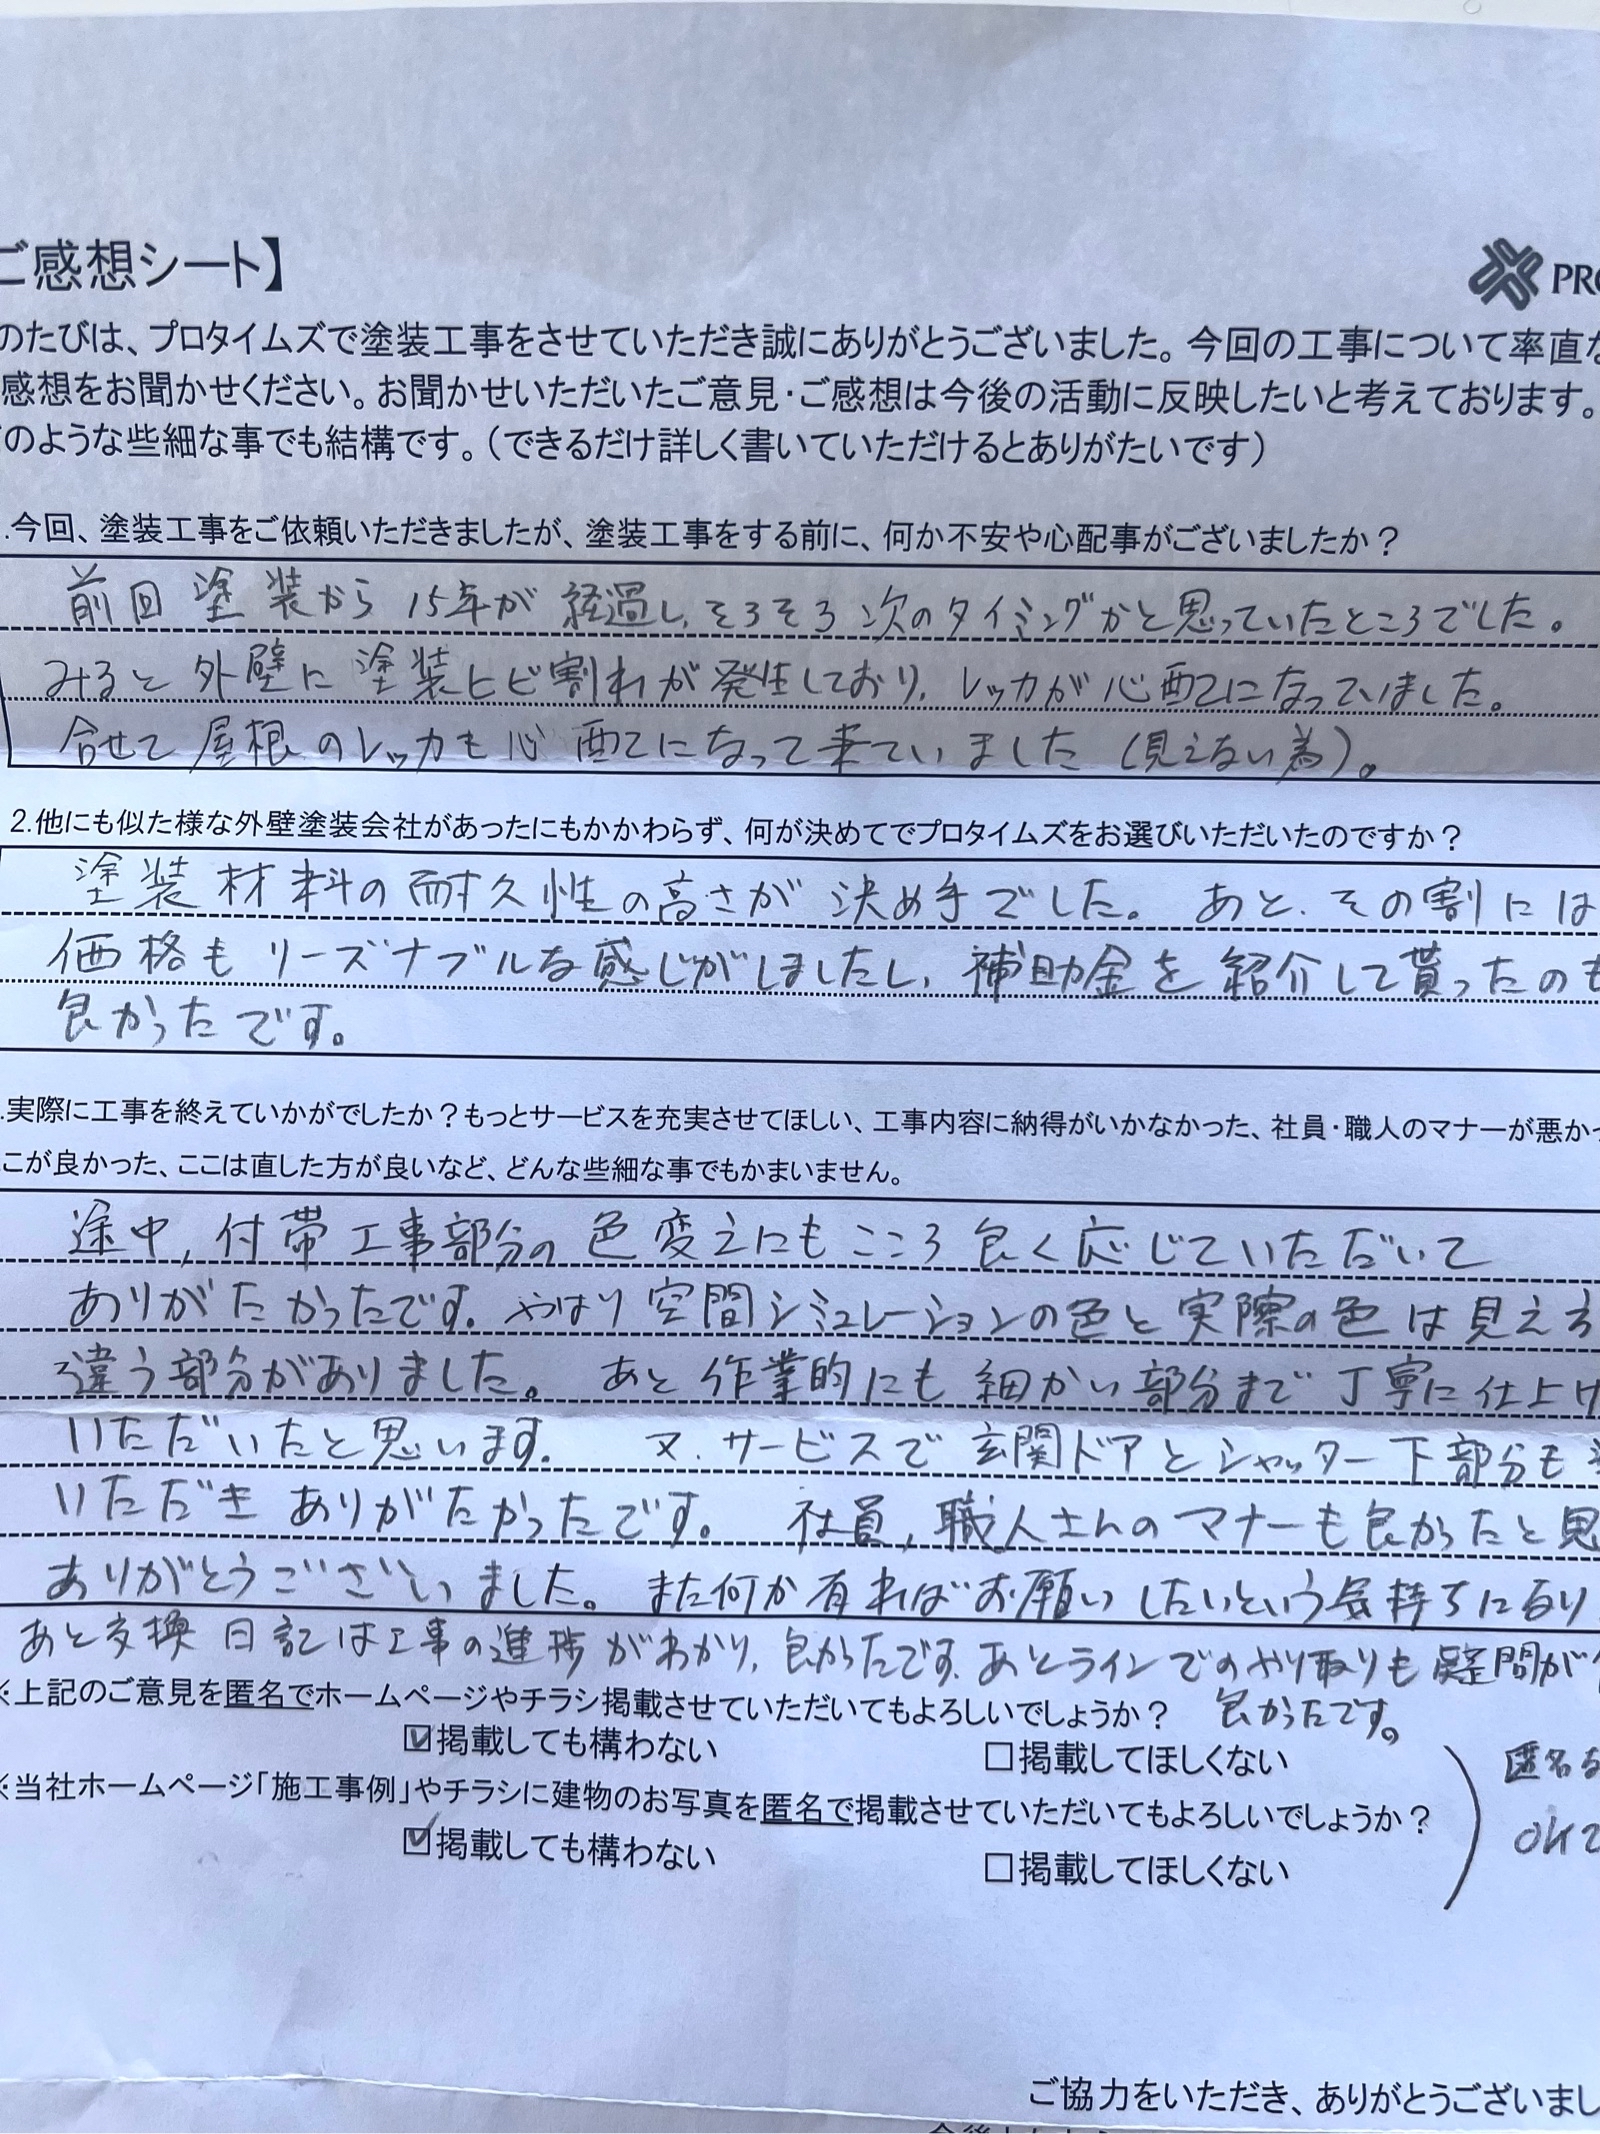 ご感想シート】
PRO
のたびは、プロタイムズで塗装工事をさせていただき誠にありがとうございました。今回の工事について率直な
感想をお聞かせください。お聞かせいただいたご意見・ご感想は今後の活動に反映したいと考えております。
のような些細な事でも結構です。(できるだけ詳しく書いていただけるとありがたいです)
.今回、塗装工事をご依頼いただきましたが、塗装工事をする前に、何か不安や心配事がございましたか？
前回塗装から15年が経過し、そろそろ次のタイミングかと思っていたところでした。
みると外壁に塗装ヒビ割れが発生しており、レッカが心配になっていました。
合せて屋根のレッカも心配になって来ていました（見えない為）。
2.他にも似た様な外壁塗装会社があったにもかかわらず、何が決めてでプロタイムズをお選びいただいたのですか？
塗装材料の耐久性の高さが決め手でした。あと、その割には
価格もリーズナブルな感じがしましたし、補助金を紹介して貰ったのも
良かったです。
.実際に工事を終えていかがでしたか？もっとサービスを充実させてほしい、工事内容に納得がいかなかった、社員・職人のマナーが悪かっ
こが良かった、ここは直した方が良いなど、どんな些細な事でもかまいません。
途中、付帯工事部分の色変えにもこころ良く応じていただいて
ありがたかったです。やはり空間シミュレーションの色と実際の色は見え方
違う部分がありました。あと作業的にも細かい部分まで丁寧に仕上げ
いただいたと思います。又、サービスで玄関ドアとシャッター下部分も
いただきありがたかったです。社員、職人さんのマナーも良かったと思
ありがとうございました。また何か有ればお願いしたいという気持ちになり
あと交換日記は工事の進捗がわかり、良かったです。あとラインでのやり取りも疑問が
※上記のご意見を匿名でホームページやチラシ掲載させていただいてもよろしいでしょうか？ 良かったです。
☑掲載しても構わない □掲載してほしくない
匿名な
※当社ホームページ「施工事例」やチラシに建物のお写真を匿名で掲載させていただいてもよろしいでしょうか？
OKで
☑掲載しても構わない □掲載してほしくない
ご協力をいただき、ありがとうございまし